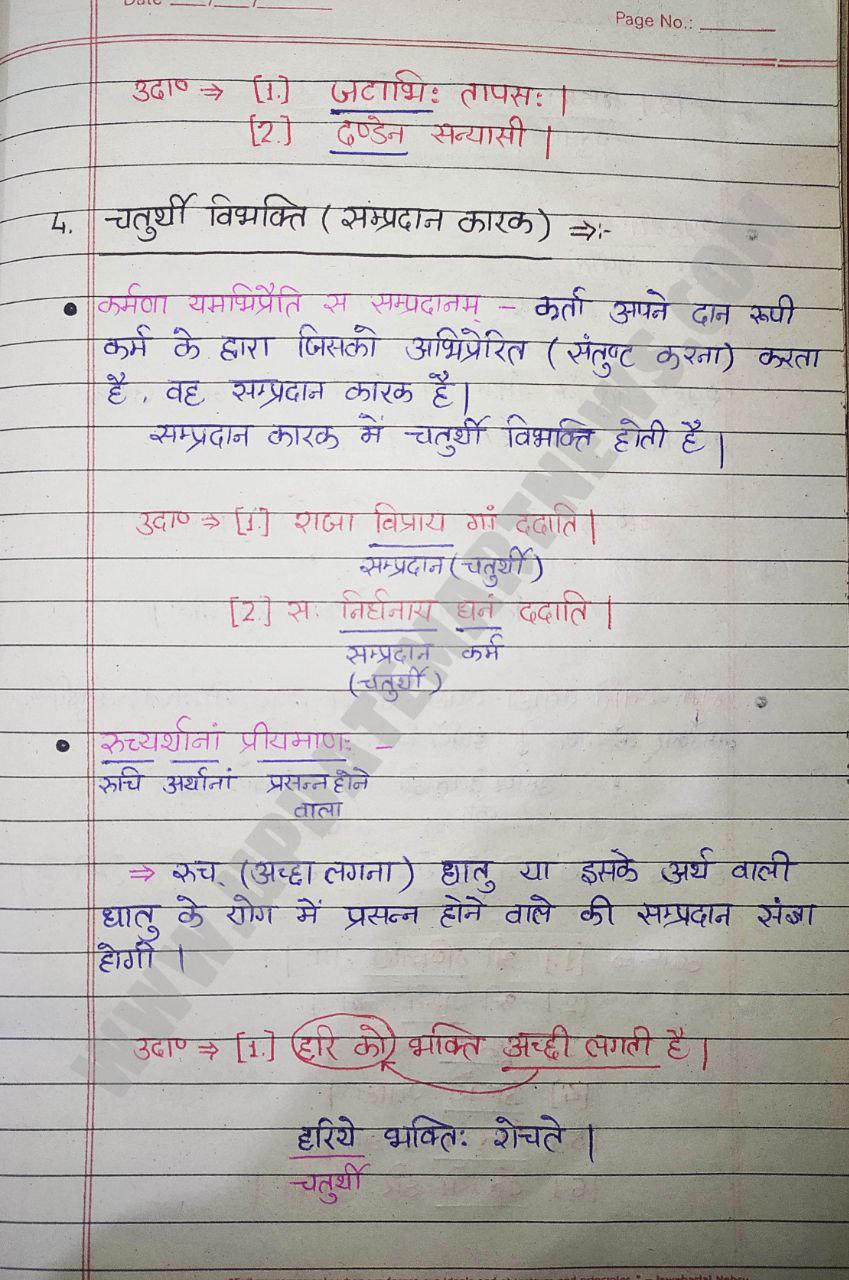 Page No.:
उदा० ⇒ [1.] जटाभिः तापसः |
[2.] दण्डेन सन्यासी |
4. चतुर्थी विभक्ति ( सम्प्रदान कारक ) ⇒:-
• कर्मणा यमभिप्रैति स सम्प्रदानम् - कर्ता अपने दान रूपी
कर्म के द्वारा जिसको अभिप्रेरित ( संतुष्ट करना) करता
है , वह सम्प्रदान कारक है |
सम्प्रदान कारक में चतुर्थी विभक्ति होती है |
उदा० ⇒ [1.] राजा विप्राय गां ददाति |
सम्प्रदान (चतुर्थी)
[2.] सः निर्धनाय धनं ददाति |
सम्प्रदान कर्म
(चतुर्थी)
• रुच्यर्थानां प्रीयमाणः -
रुचि अर्थानां प्रसन्न होने
वाला
⇒ रुच् (अच्छा लगना ) धातु या इसके अर्थ वाली
धातु के योग में प्रसन्न होने वाले की सम्प्रदान संज्ञा
होगी |
उदा० ⇒ [1.] हरि को भक्ति अच्छी लगती है |
हरिये भक्तिः रोचते |
चतुर्थी